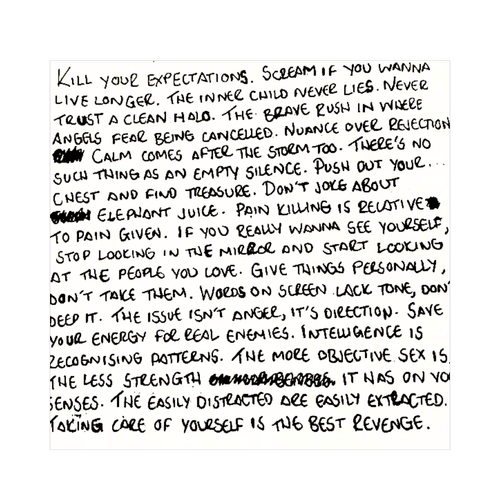 KILL YOUR EXPECTATIONS. SCREAM IF YOU WANNA
LIVE LONGER. THE INNER CHILD NEVER LIES. NEVER
TRUST A CLEAN HALO. THE BRAVE RUSH IN WHERE
ANGELS FEAR BEING CANCELLED. NUANCE OVER REJECTION
CALM COMES AFTER THE STORM TOO. THERE'S NO
SUCH THING AS AN EMPTY SILENCE. PUSH OUT YOUR...
CHEST AND FIND TREASURE. DON'T JOKE ABOUT
ELEPHANT JUICE. PAIN KILLING IS RELATIVE
TO PAIN GIVEN. IF YOU REALLY WANNA SEE YOURSELF,
STOP LOOKING IN THE MIRROR AND START LOOKING
AT THE PEOPLE YOU LOVE. GIVE THINGS PERSONALLY,
DON'T TAKE THEM. WORDS ON SCREEN LACK TONE, DON'
DEEP IT. THE ISSUE ISN'T ANGER, IT'S DIRECTION. SAVE
YOUR ENERGY FOR REAL ENEMIES. INTELLIGENCE IS
RECOGNISING PATTERNS. THE MORE OBJECTIVE SEX IS,
THE LESS STRENGTH IT HAS ON YO
SENSES. THE EASILY DISTRACTED ARE EASILY EXTRACTED.
TAKING CARE OF YOURSELF IS THE BEST REVENGE.